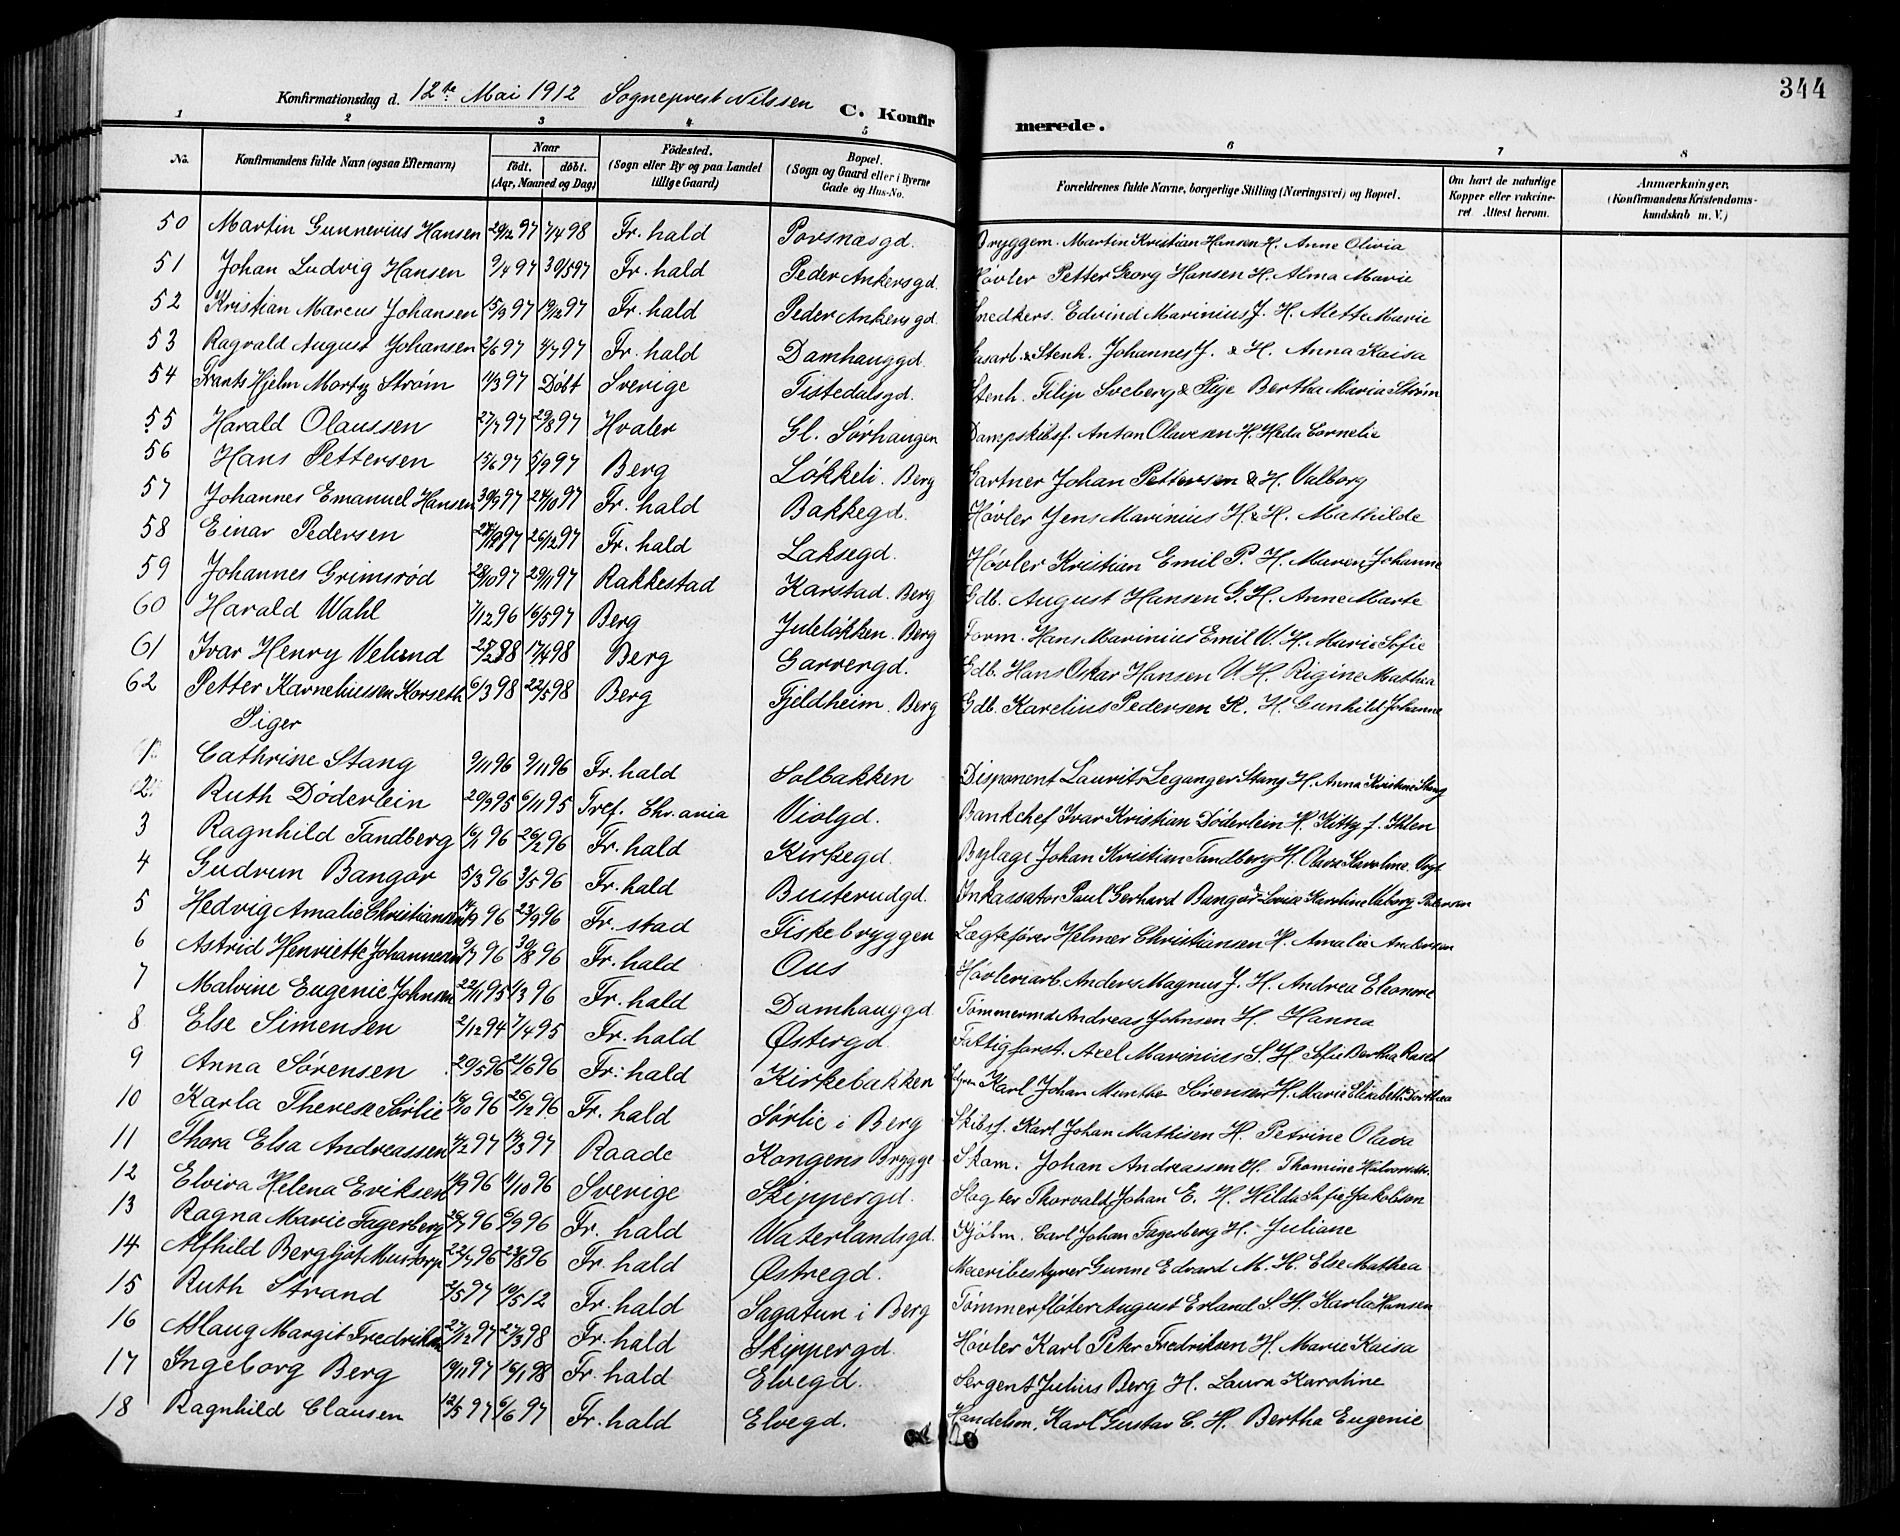 344
Konfirmationsdag d. 12te Mai 1912 Sogneprest Nilssen C. Konfirmerede.
1 2 3 4 5 6 7 8
No. Konfirmandens fulde Navn (ogsaa Efternavn) Naar født. døbt. (Aar, Maaned og Dag) Födested. (Sogn eller By og paa Landet tillige Gaard) Bopæl. (Sogn og Gaard eller i Byerne Gade og Hus-No. Forældrenes fulde Navne, borgerlige Stilling (Næringsvei) og Bopæl. Om havt de naturlige Kopper eller vakcineret. Attest herom. Anmærkninger. (Konfirmandens Kristendomskundskab m. V.)
50 Martin Gunnerius Hansen 29/12 97 7/4 98 Fr. hald Porsnæsgd. Bryggem. Martin Kristian Hansen H. Anne Olivia
51 Johan Ludvig Hansen 9/4 97 30/5 97 Fr. hald Peder Ankersgd. Høvler Petter Georg Hansen H. Alma Marie
52 Kristian Marcus Johansen 15/9 97 19/12 97 Fr. hald Peder Ankersgd. Snedkers. Edvind Marinius J. H. Mette Marie
53 Ragvald August Johansen 2/6 97 4/7 97 Fr. hald Damhauggd. & Stenh. Johannes J. & H. Anna Kaisa
54 Frants Hjelm Mortz Strøm 11/3 97 Døbt Sverige Tistedalsgd. Stenh. Filip Sveberg & Pige Bertha Maria Strøm
55 Harald Olaussen 27/7 97 29/8 97 Hvaler Gl. Sørhaugen Dampskibsf. Anton Olavesen H. Heda Cornelie
56 Hans Pettersen 15/6 97 5/9 97 Berg Løkkeli. Berg Gartner Johan Pettersen & H. Valborg
57 Johannes Emanuel Hansen 30/9 97 24/10 97 Fr. hald Bakkegd. Høvler Jens Marinius H. & H. Mathilde
58 Einar Pedersen 97 26/12 97 Fr. hald Laksegd. Høvler Kristian Emil P. H. Maren Johanne
59 Johannes Grimsrød 28/10 97 29/11 97 Rakkestad Karstad. Berg Gdb. August Hansen G. H. Anne Marte
60 Harald Wahl 7/12 96 16/5 97 Berg Juteløkken. Berg Form. Hans Marinius Emil W. H. Marie Sofie
61 Ivar Henry Velund 25/2 98 17/4 98 Berg Garvergd. Gdb. Hans Oskar Hansen V. H. Rigine Mathea
62 Petter Karneliussen Korseth 6/3 98 22/5 98 Berg Fjeldheim. Berg Gdb. Karelius Pedersen K. H. Gunhild Johanne
Piger
1 Cathrine Stang 9/11 96 9/11 96 Fr. hald Solbakken Disponent Laurits Leganger Stang H. Anna Kristine Stang
2 Ruth Døderlein 20/9 95 6/11 95 Tref. Chr.ania Violgd. Bankchef Ivar Kristian Døderlein H. Kitty f. Ihlen
3 Ragnhild Tandberg 16/1 96 26/2 96 Fr. hald Kirkegd. Bylæge Johan Kristian Tandberg H. Olava Karoline Vogt
4 Gudrun Bangor 5/3 96 3/5 96 Fr. hald Busterudgd. Inkassator Paul Gerhard Bangor & Lovise Karoline Valborg Pedersen
5 Hedvig Amalie Christiansen 96 23/9 96 Fr. stad Fiskebryggen Lægtefører Helmer Christiansen H. Amalie Andersen
6 Astrid Henriette Johannesen 9/7 96 30/8 96 Fr. hald Ous Høvleriarb. Anders Magnus J. H. Andrea Eleonore
7 Malvine Eugenie Johnsen 22/11 95 1/3 96 Fr. hald Damhauggd Tømmermd Andreas Johnsen H. Hanna
8 Else Simensen 2/12 94 7/4 95 Fr. hald Østergd. Fattigforst. Axel Marinius S. H. Sofie Bertha
9 Anna Sørensen 20/5 96 21/6 96 Fr: hald Kirkebakken Karl Johan Munthe Sørensen H. Marie Elisabeth Dorthea
10 Karla Therese Sørlie 18/10 96 25/12 96 Fr. hald Sørlie i Berg Skibsf. Karl Johan Mathisen H. Petrine Olava
11 Thora Elsa Andreassen 4/2 97 14/3 97 Raade Kongens Brygge Skom. Johan Andreassen H. Thomine Halvorsdtr.
12 Elvira Helena Eriksen 14/9 96 4/10 96 Sverige Skippergd. Slagter Thorvald Johan E. H. Hilda Sofie Jakobsen
13 Ragna Marie Fagerberg 26/7 96 6/9 96 Fr. hald Waterlandsgd. Sjøhm. Carl Johan Fagerberg H. Juliane
14 Alfhild Bergljot Mustorp 22/7 96 23/8 96 Fr. hald Østregd. Meieribestyrer Gunne Edvard M. H. Else Mathea
15 Ruth Strand 2/5 97 10/5 12 Fr. hald Sagatun i Berg Tømmerfløter August Erland S. H. Karla Hansen
16 Aslaug Margit Fredriksen 27/12 97 27/3 98 Fr. hald Skippergd. Høvler Karl Peter Fredriksen H. Marie Kaisa
17 Ingeborg Berg 19/11 97 16/1 98 Fr. hald Elvegd. Sergent Julius Berg H. Laura Karoline
18 Ragnhild Clausen 12/5 97 6/6 97 Fr. hald Elvegd. Handelsm. Karl Gustav C. H. Bertha Eugenie